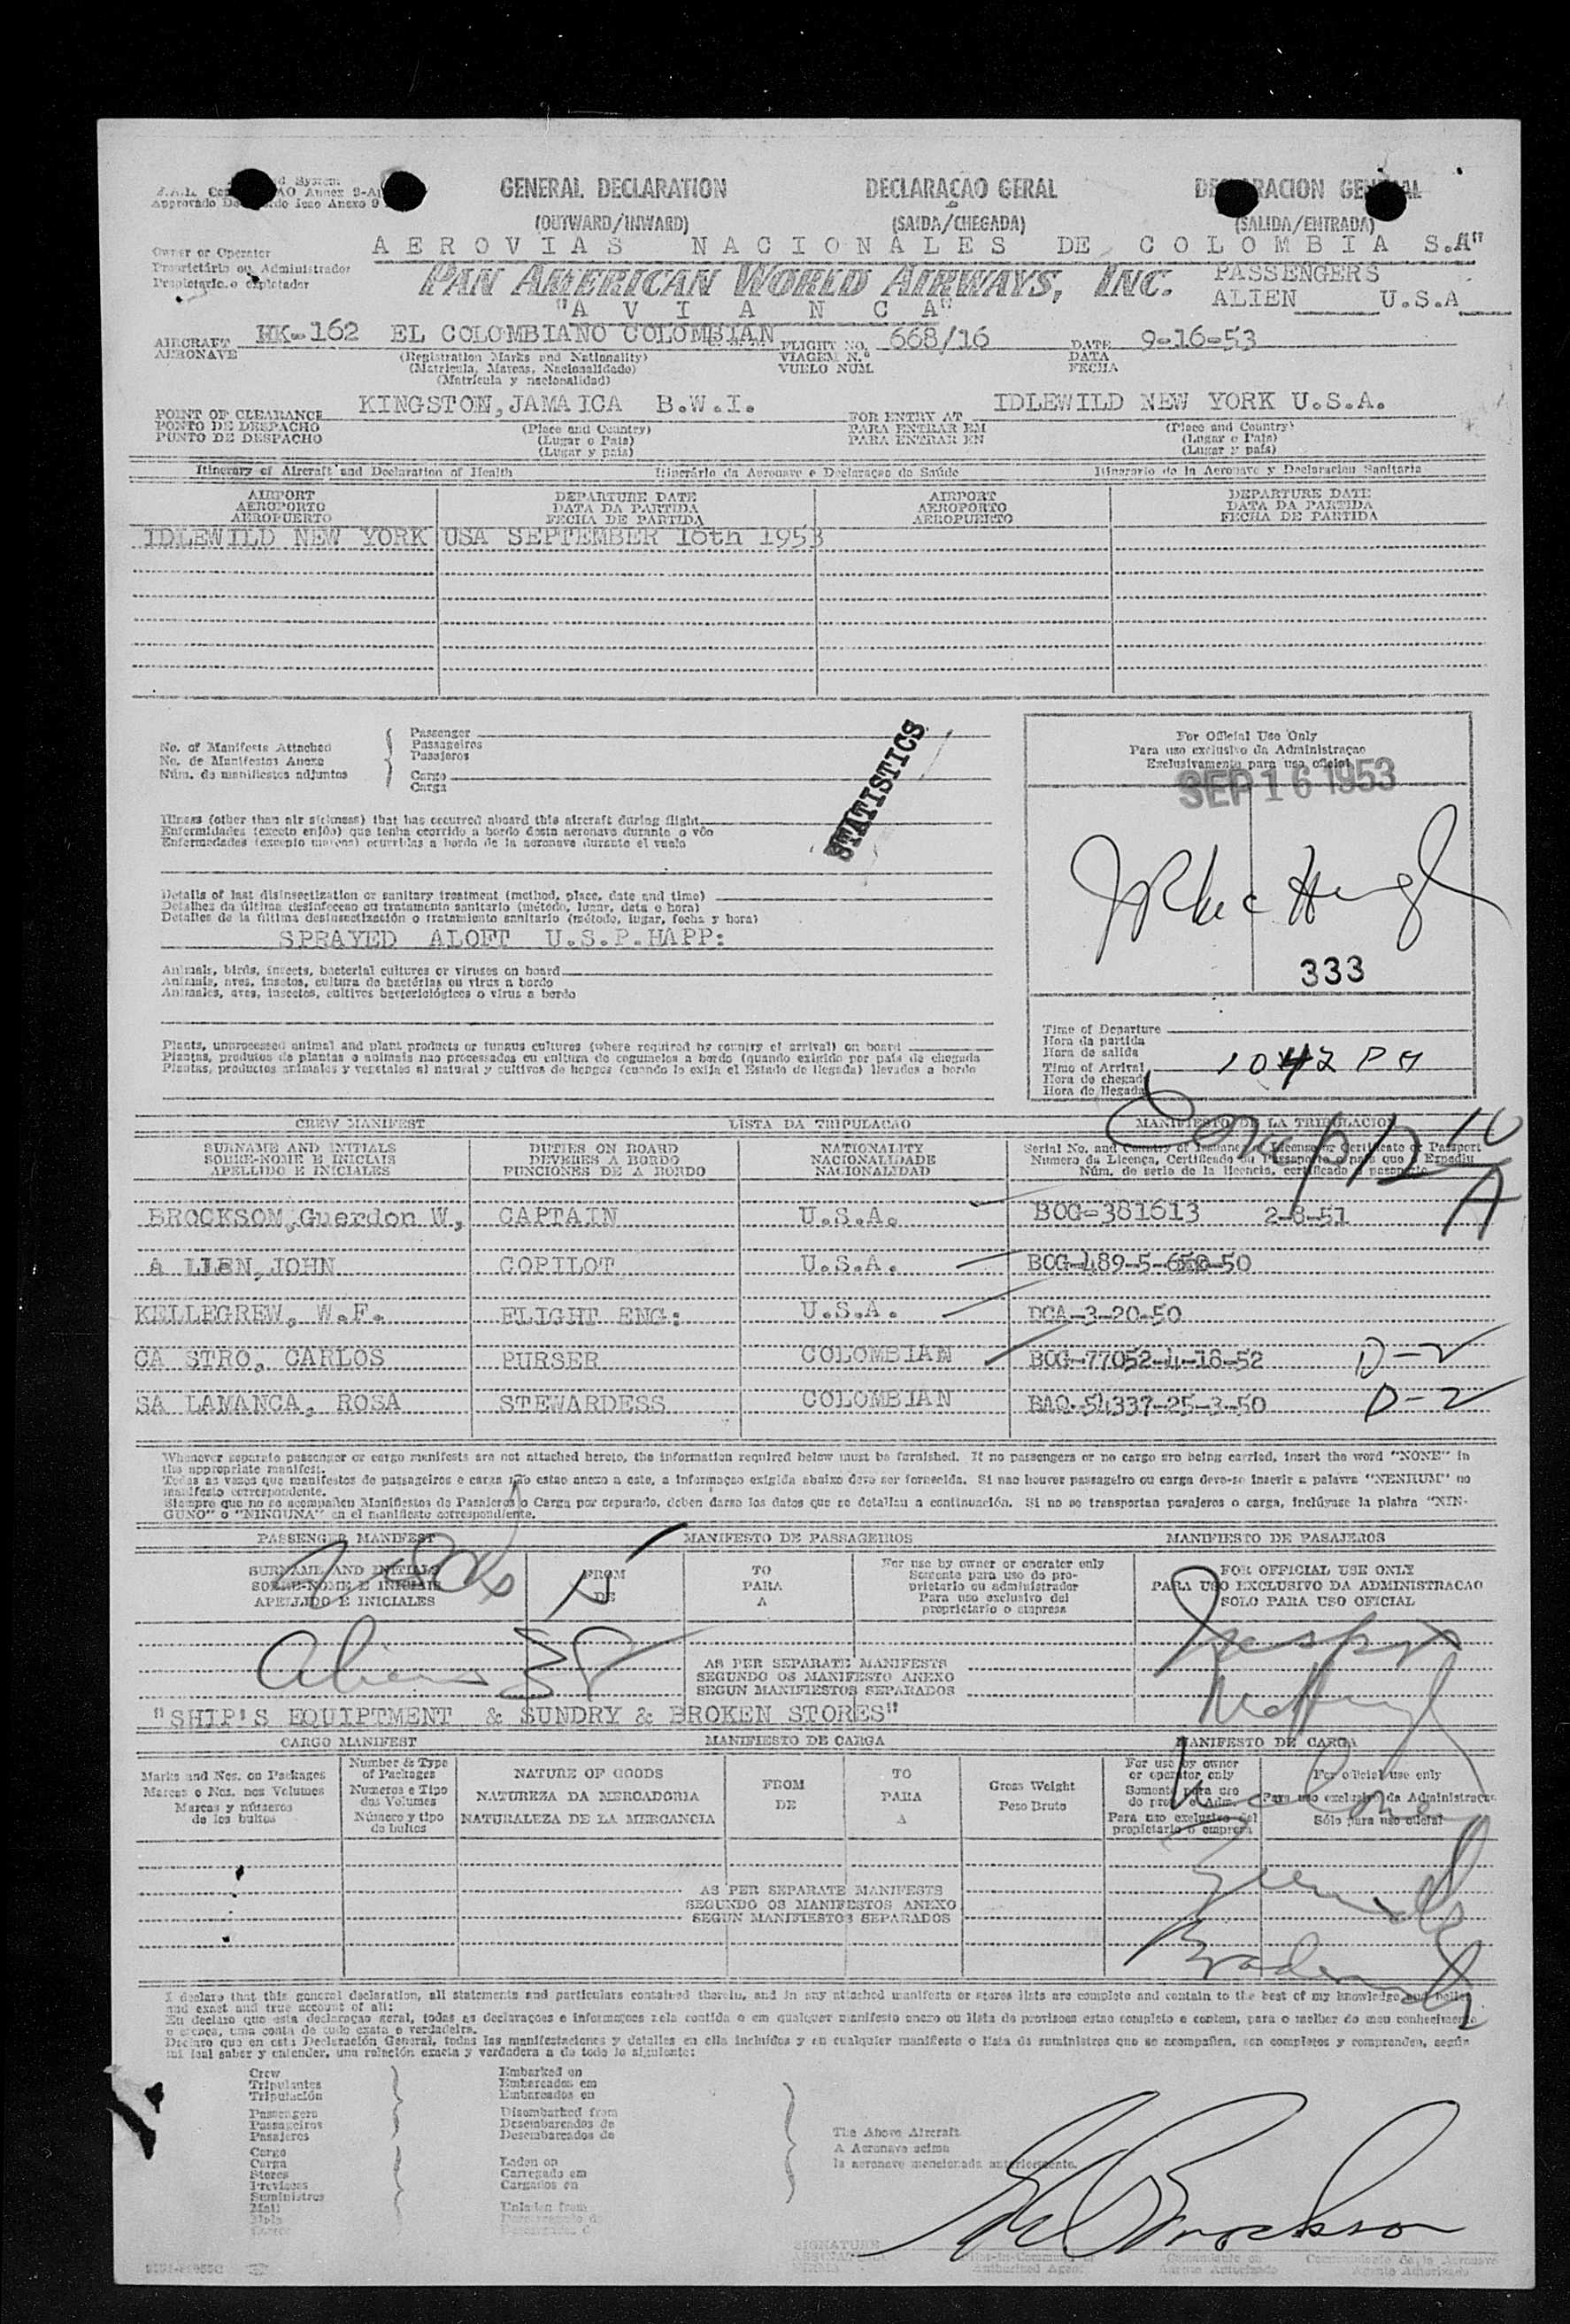 GENERAL DECLARATION DECLARAÇAO GERAL
(OUTWARD/INWARD) (SAIDA/CHEGADA) (SALIDA/ENTRADA)
AEROVIAS NACIONALES DE COLOMBIA S.A"
Owner or Operator
Proprietário ou Administrador
Propietario o explotador
PAN AMERICAN WORLD AIRWAYS, INC. PASSENGERS
"A V I A N C A" ALIEN____ U.S.A____
AIRCRAFT HK-162 EL COLOMBIANO COLOMBIAN FLIGHT NO. 668/16 DATE 9-16-53
AERONAVE (Registration Marks and Nationality) VIAGEM N.º DATA
(Matricula, Marcas, Nacionalidade) VUELO NÚM. FECHA
(Matrícula y nacionalidad)
POINT OF CLEARANCE KINGSTON,JAMAICA B.W.I. FOR ENTRY AT IDLEWILD NEW YORK U.S.A.
PONTO DE DESPACHO (Place and Country) PARA ENTRAR EM (Place and Country)
PUNTO DE DESPACHO (Lugar e Pais) PARA ENTRAR EN (Lugar e Pais)
(Lugar y país) (Lugar y país)
Itinerary of Aircraft and Declaration of Health Itinerário da Aeronave e Declaraçao de Saúde Itinerario de la Aeronave y Declaracion Sanitaria
AIRPORT DEPARTURE DATE AIRPORT DEPARTURE DATE
AEROPORTO DATA DA PARTIDA AEROPORTO DATA DA PARTIDA
AEROPUERTO FECHA DE PARTIDA AEROPUERTO FECHA DE PARTIDA
IDLEWILD NEW YORK USA SEPTEMBER 16th 1953
No. of Manifests Attached
No. de Manifestos Anexo
Núm. de manifiestos adjuntos
Passenger
Passageiros
Pasajeros
Cargo
Carga
STATISTICS
For Official Use Only
Para uso exclusivo da Administraçao
Exclusivamente para uso oficial
SEP 16 1953
333
Illness (other than air sickness) that has occurred aboard this aircraft during flight
Enfermidades (exceto enjôo) que tenha ocorrido a bordo desta aeronave durante o vôo
Enfermedades (excepto mareos) ocurridas a bordo de la aeronave durante el vuelo
Details of last disinsectization or sanitary treatment (method, place, date and time)
Detalhes da última desinfeccao ou tratamento sanitario (método, lugar, data e hora)
Detalles de la última desinsectización o tratamiento sanitario (método, lugar, fecha y hora)
SPRAYED ALOFT U.S.P.HAPP:
Animals, birds, insects, bacterial cultures or viruses on board
Animais, aves, insetos, cultura de bactérias ou virus a bordo
Animales, aves, insectos, cultivos bacteriológicos o virus a bordo
Plants, unprocessed animal and plant products or fungus cultures (where required by country of arrival) on board
Plantas, produtos de plantas e animais nao processados ou cultura de cogumelos a bordo (quando exigido por pais de chegada
Plantas, productos animales y vegetales al natural y cultivos de hongos (cuando lo exija el Estado de llegada) llevados a bordo
Time of Departure
Hora da partida
Hora de salida
Time of Arrival 1042 PM
Hora de chegada
Hora de llegada
CREW MANIFEST LISTA DA TRIPULACAO MANIFIESTO DE LA TRIPULACION
SURNAME AND INITIALS DUTIES ON BOARD NATIONALITY
SOBRE-NOME E INICIAIS DEVERES A BORDO NACIONALIDADE
APELLIDO E INICIALES FUNCIONES DE A BORDO NACIONALIDAD
BROCKSON,Guerdon W, CAPTAIN U.S.A. BOG-381613 2-8-51
A LLEN,JOHN COPILOT U.S.A.
KELLEGREW, W.F. FLIGHT ENG: U.S.A. DCA-3-20-50
CA STRO, CARLOS PURSER COLOMBIAN BOG-77052-4-16-52 D-2
SA LAMANCA, ROSA STEWARDESS COLOMBIAN BAQ-54337-25-3-50 D-2
Whenever separate passenger or cargo manifests are not attached hereto, the information required below must be furnished. If no passengers or no cargo are being carried, insert the word "NONE" in
the appropriate manifest.
Todas as vezes que manifestos de passageiros e carga nao estao anexo a este, a informaçao exigida abaixo deve ser fornecida. Si nao houver passageiro ou carga deve-se inserir a palavra "NENHUM" no
manifesto correspondente.
Siempre que no se acompañen Manifiestos de Pasajeros o Carga por separado, deben darse los datos que se detallan a continuación. Si no se transportan pasajeros o carga, inclúyase la plabra "NIN-
GUNO" o "NINGUNA" en el manifiesto correspondiente.
PASSENGER MANIFEST MANIFESTO DE PASSAGEIROS MANIFIESTO DE PASAJEROS
SURNAME AND INITIALS FROM TO For use by owner or operator only FOR OFFICIAL USE ONLY
SOBRE-NOME E INICIAIS DE PARA Somente para uso do pro- PARA USO EXCLUSIVO DA ADMINISTRACAO
APELLIDO E INICIALES A prietario ou administrador SOLO PARA USO OFICIAL
Para uso exclusivo del
propietario o empresa
Aliens
AS PER SEPARATE MANIFESTS
SEGUNDO OS MANIFESTO ANEXO
SEGUN MANIFIESTOS SEPARADOS
"SHIP'S EQUIPTMENT & SUNDRY & BROKEN STORES"
CARGO MANIFEST MANIFIESTO DE CARGA MANIFESTO DE CARGA
Marks and Nos. on Packages Number & Type of Packages NATURE OF GOODS FROM TO Gross Weight For use by owner or operator only For official use only
Marcas e Nos. nos Volumes Numeros e Tipo dos Volumes NATUREZA DA MERCADORIA DE PARA Peso Bruto
Marcas y números de los bultos Número y tipo de bultos NATURALEZA DE LA MERCANCIA A Para uso exclusivo del propietario o empresa Sólo para uso oficial
AS PER SEPARATE MANIFESTS
SEGUNDO OS MANIFESTOS ANEXO
SEGUN MANIFIESTOS SEPARADOS
I declare that this general declaration, all statements and particulars contained therein, and in any attached manifests or stores lists are complete and contain to the best of my knowledge and belief
and exact and true account of all:
Crew
Tripulantes
Tripulación
Passengers
Passageiros
Pasajeros
Cargo
Carga
Stores
Suministros
Mail
Embarked on
Embarcados em
Embarcados en
Disembarked from
Desembarcados de
Desembarcados de
Laden on
Carregado em
Cargados en
Unladen from
The Above Aircraft
A Aeronave acima
la aeronave mencionada anteriormente.
SIGNATURE